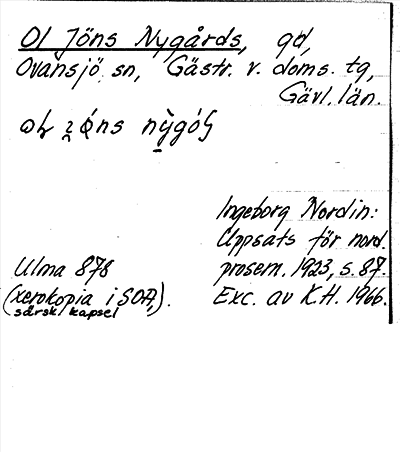 Ol Jöns Nygårds, gd,
Ovansjö sn, Gästr. v. doms. tg,
Gävl. län.
Ingeborg Nordin:
Uppsats för nord.
Ulma 878 prosem. 1923, s. 87.
(xerokopia i SOA, Exc. av K.H. 1966.
särsk. kapsel).